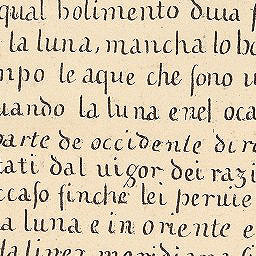 qual bolimento dura
la luna, mancha lo bo
mpo le aque che ſono
uando la luna enel oca
parte de occidente di
tati dal uigor dei razi
ccaſo finche lei peruie
a luna e in oriente e